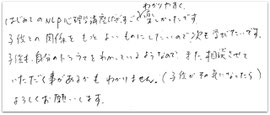 わかりやすく、
はじめてのNLP心理学講座でしたが、すごく楽しかったです。
子役との関係をもっとよいものにしたいので次も学びたいです。
子役も、自分のトラウマをわかっているようなので、また、相談させて
いただく事があるかもわかりません。（子役がその気になったら）
よろしくお願いします。